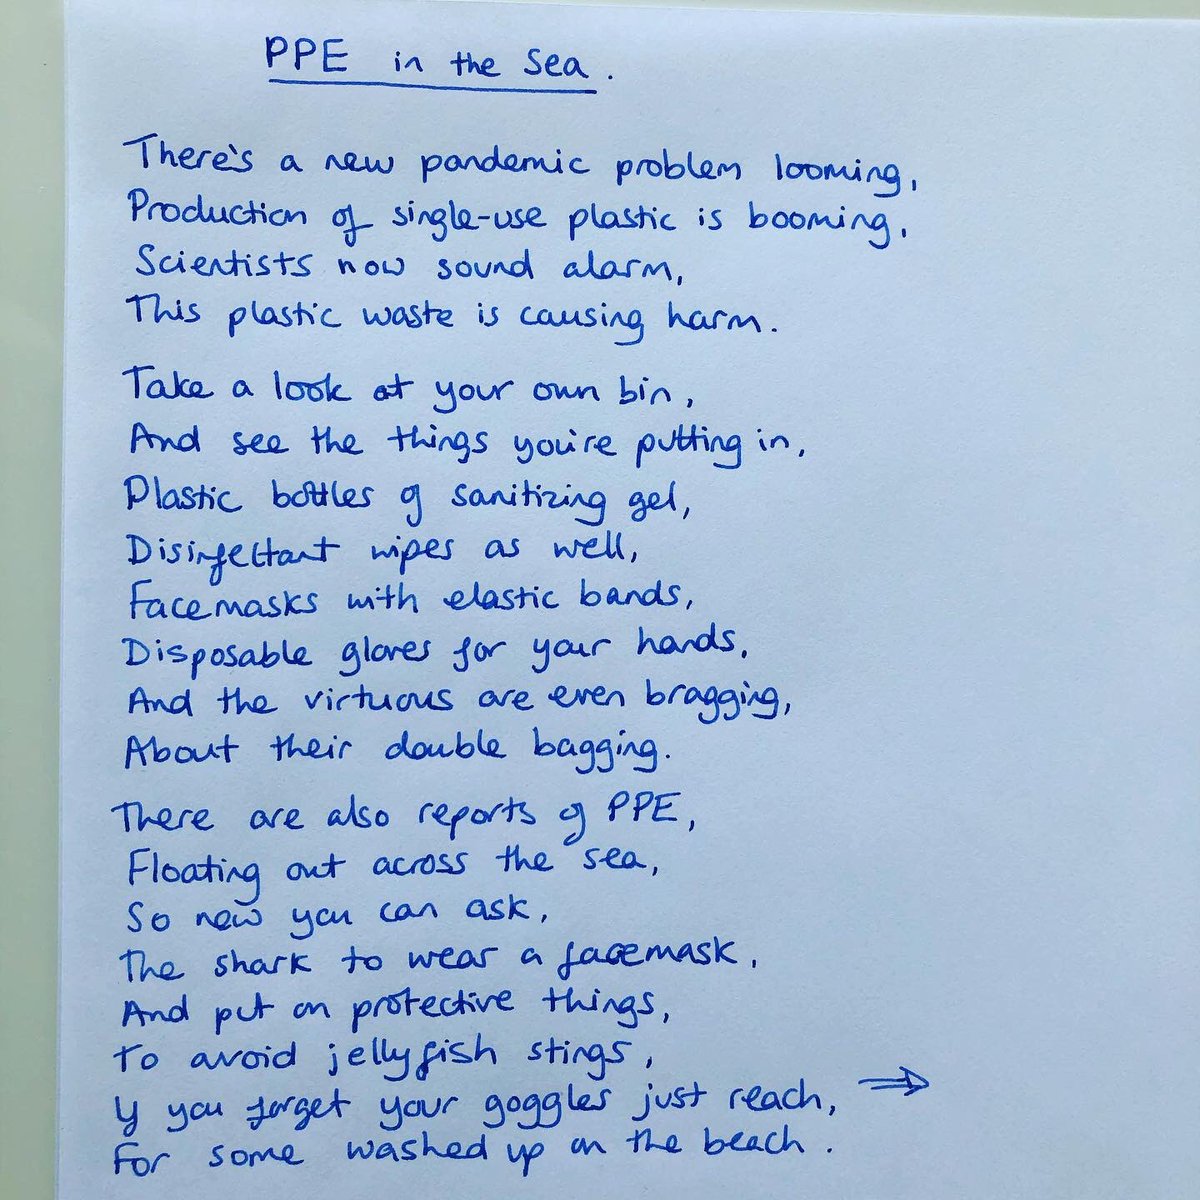 PPE in the Sea.
There's a new pandemic problem looming,
Production of single-use plastic is booming,
Scientists now sound alarm,
This plastic waste is causing harm.
Take a look at your own bin,
And see the things you're putting in,
Plastic bottles of sanitizing gel,
Disinfectant wipes as well,
Facemasks with elastic bands,
Disposable gloves for your hands,
And the virtuous are even bragging,
About their double bagging.
There are also reports of PPE,
Floating out across the sea,
So now you can ask,
The shark to wear a facemask,
And put on protective things,
To avoid jellyfish stings,
If you forget your goggles just reach, ⇒
For some washed up on the beach.